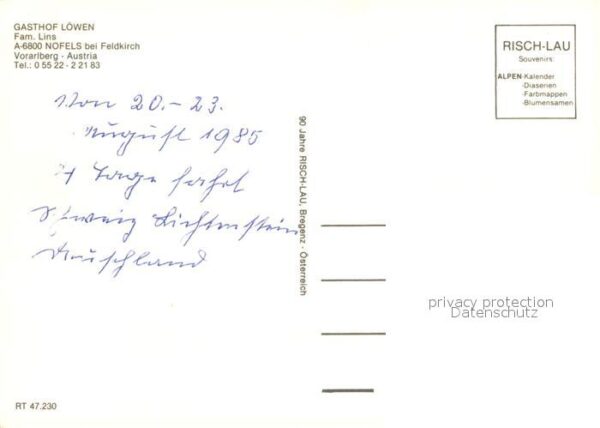 GASTHOF LÖWEN
Fam. Lins
A-6800 NOFELS bei Feldkirch
Vorarlberg - Austria
Tel.: 0 55 22 - 2 21 83
RISCH-LAU
Souvenirs:
ALPEN-Kalender
-Diaserien
-Farbmappen
-Blumensamen
Von 20.-23.
August 1985
4 Tage fahrt
Schweiz Lichtenstein
Deutschland
90 Jahre RISCH-LAU, Bregenz - Österreich
privacy protection
Datenschutz
RT 47.230